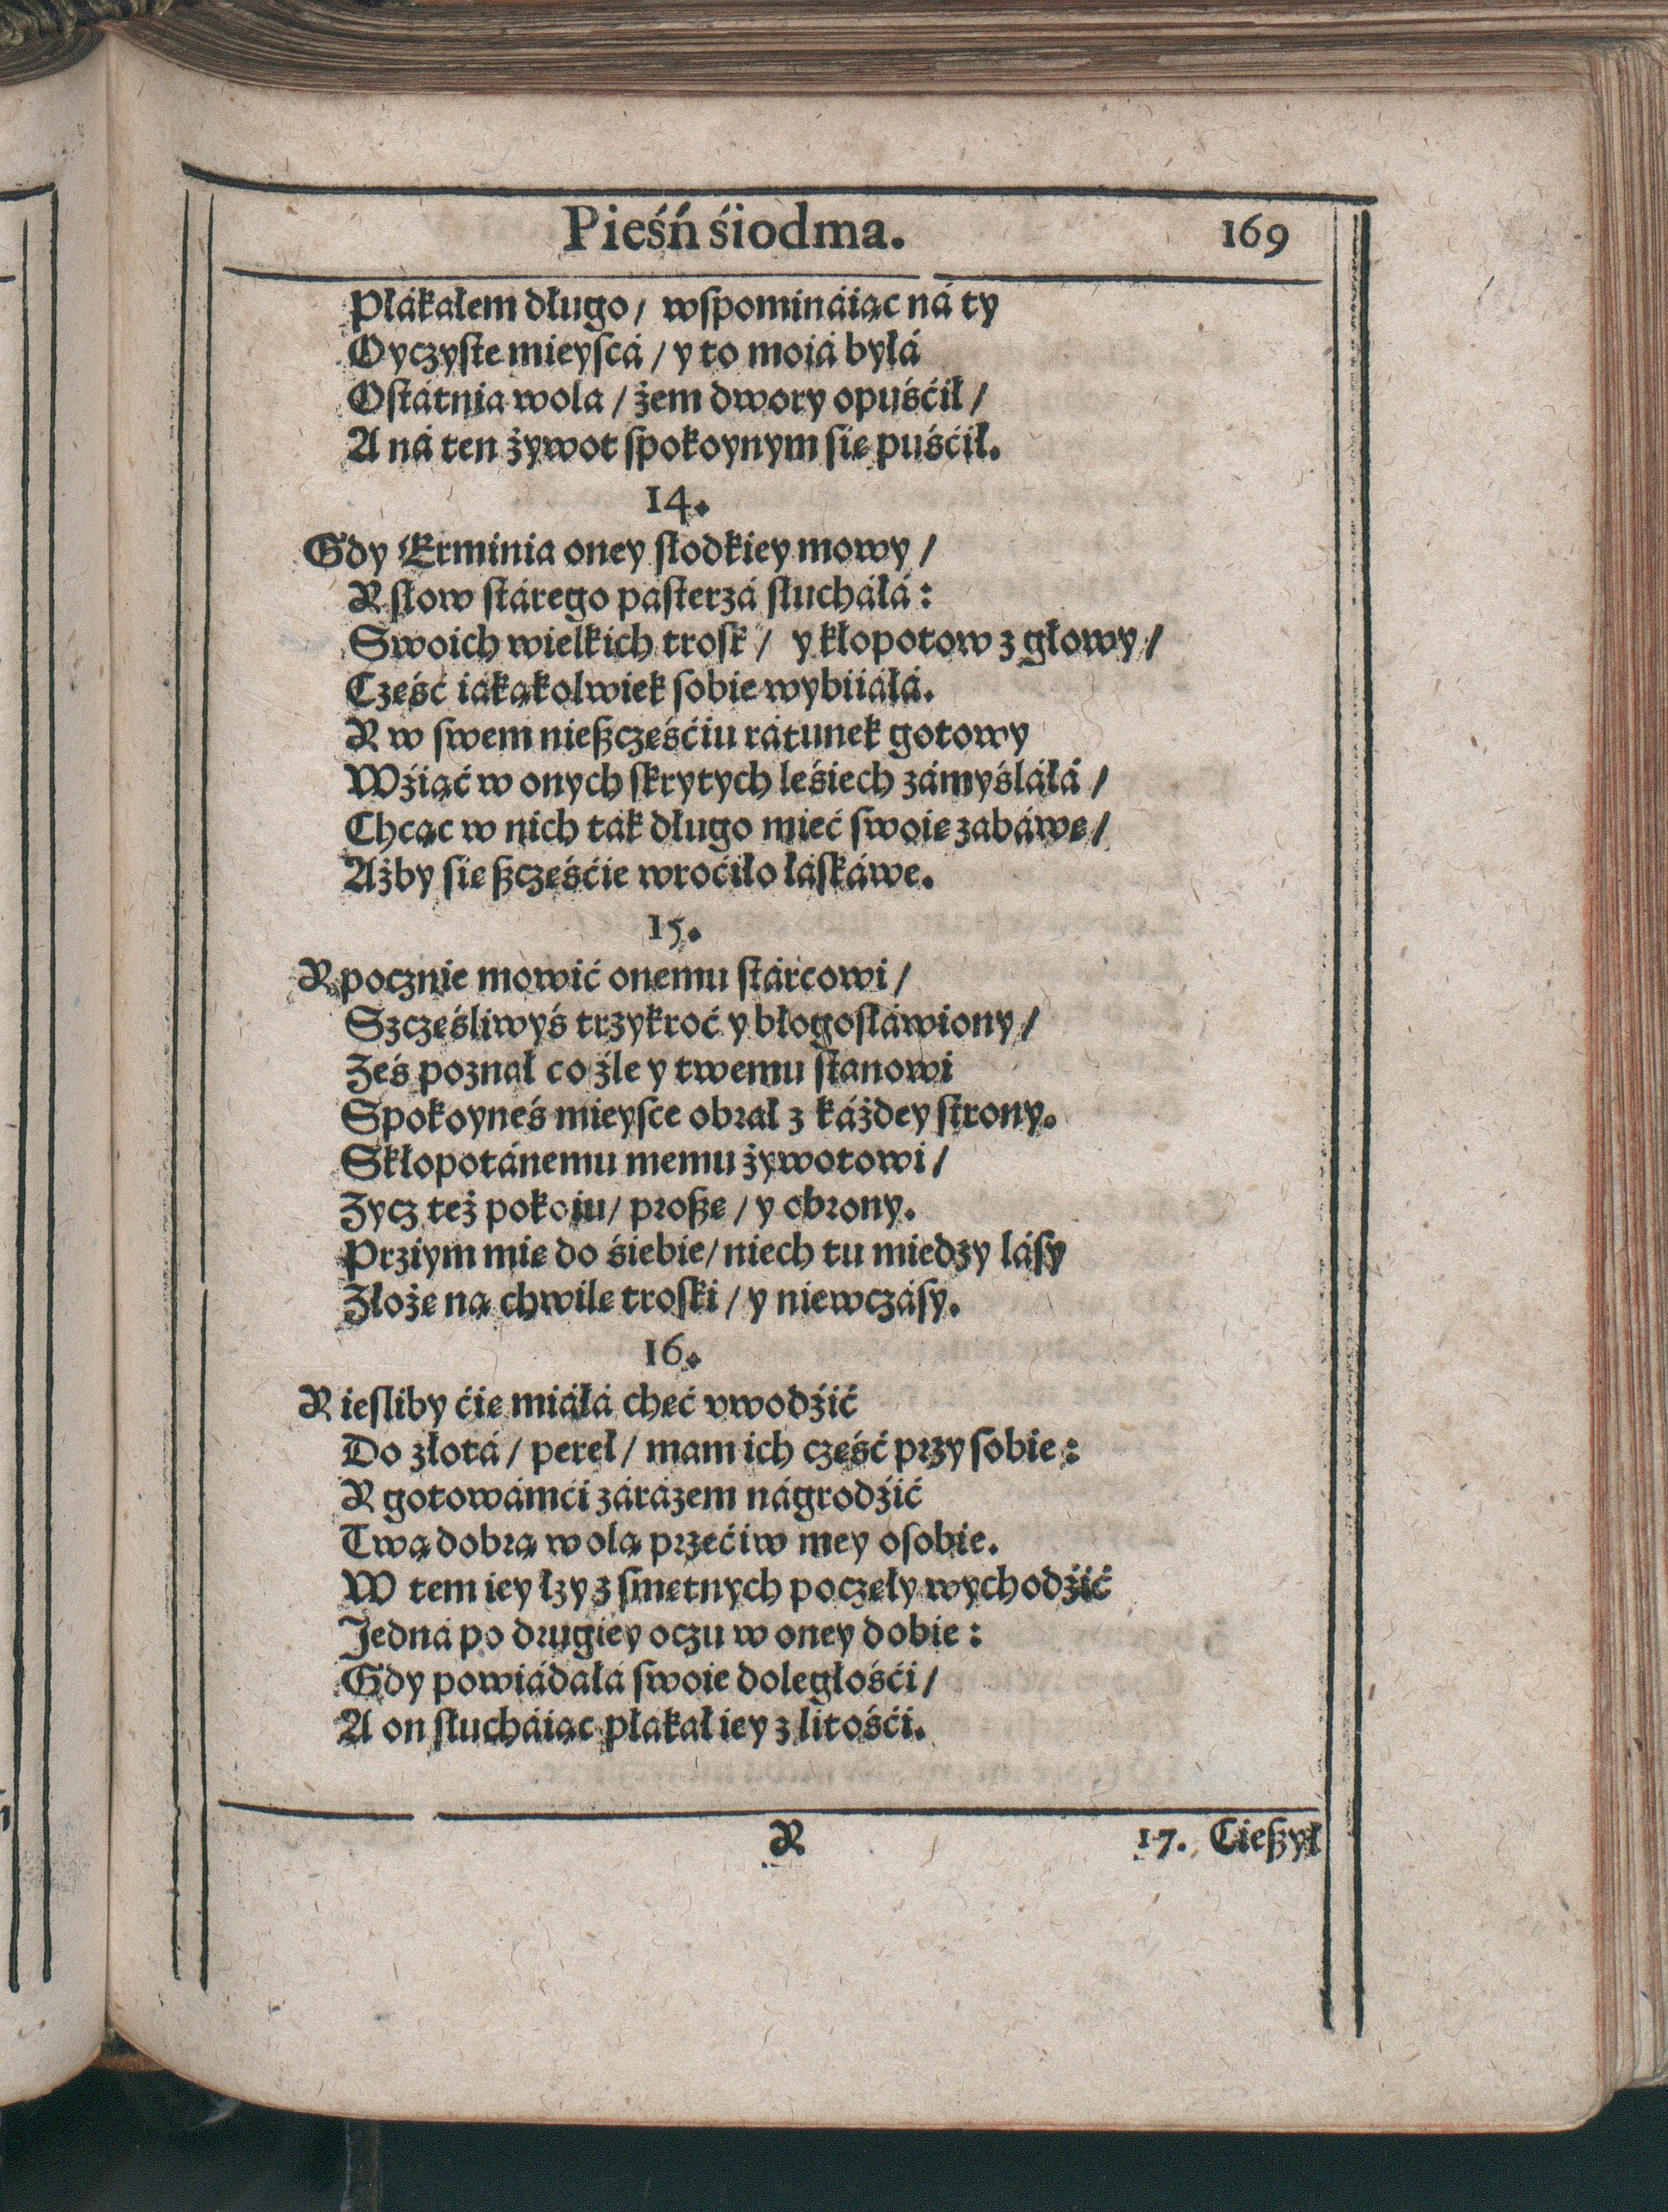 Pieśń śiodma.
169
Płákałem długo / wſpomináiąc ná ty
Oyczyſte mieyſcá / y to moiá byłá
Oſtátnia wola / żem dwory opuśćił /
A ná ten żywot ſpokoynym ſię puśćił.
14.
Gdy Erminia oney ſłodkiey mowy /
Y ſłow ſtárego páſterzá ſłucháłá:
Swoich wielkich troſk / y kłopotow z głowy /
Część iákąkolwiek ſobie wybiiáłá.
Y w ſwem nieſzczęśćiu rátunek gotowy
Wźiąć w onych ſkrytych leśiech zámyśláłá /
Chcąc w nich ták długo mieć ſwoię zabáwę /
Ażby ſię ſzczęśćie wroćiło łáſkáwe.
15.
Y pocznie mowić onemu ſtárcowi /
Szczęśliwyś trzykroć y błogoſłáwiony /
Żeś poznał co źle y twemu ſtanowi
Spokoyneś mieyſce obrał z káżdey ſtrony.
Skłopotánemu memu żywotowi /
Zycz też pokoiu / proſzę / y obrony.
Prziym mię do śiebie / niech tu między láſy
Złożę ná chwilę troſki / y niewczáſy.
16.
Y ieſliby ćię miáłá chęć vwodźić
Do złotá / pereł / mam ich część przy ſobie:
Y gotowámći zárázem nágrodźić
Twą dobrą wolą przećiw mey oſobie.
W tem iey łzy z ſmętnych poczęły wychodźić
Jedná po drugiey oczu w oney dobie:
Gdy powiádałá ſwoie doległośći /
A on ſłucháiąc płakał iey z litośći.
Y
17. Cieſzył